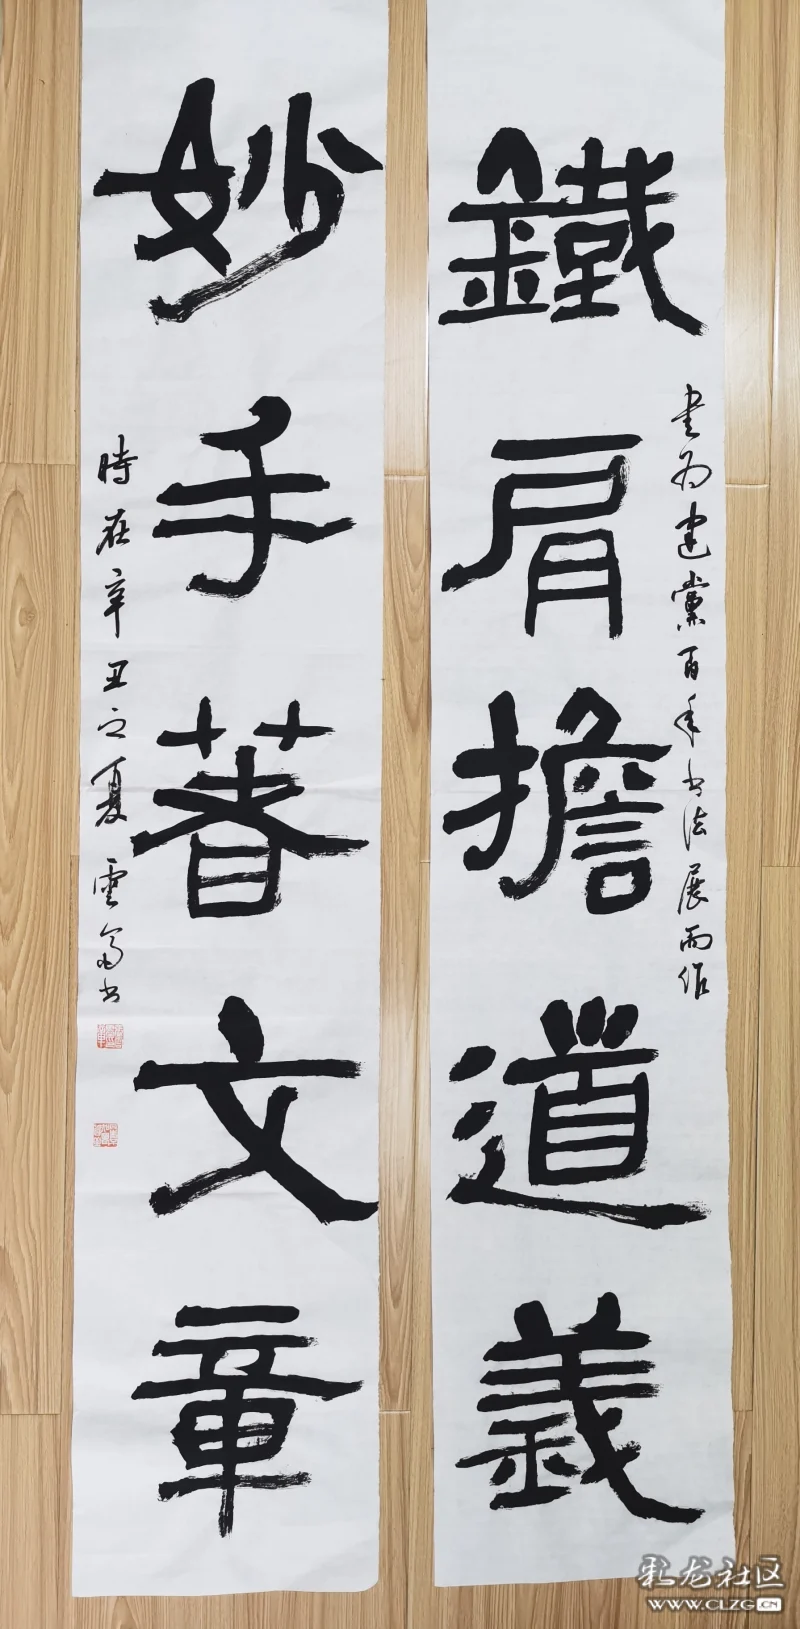 鐵肩擔道義
书为建黨百年书法展而作
妙手著文章
時在辛丑之夏 雲富书
彩龙社区
WWW.CLZG.CN